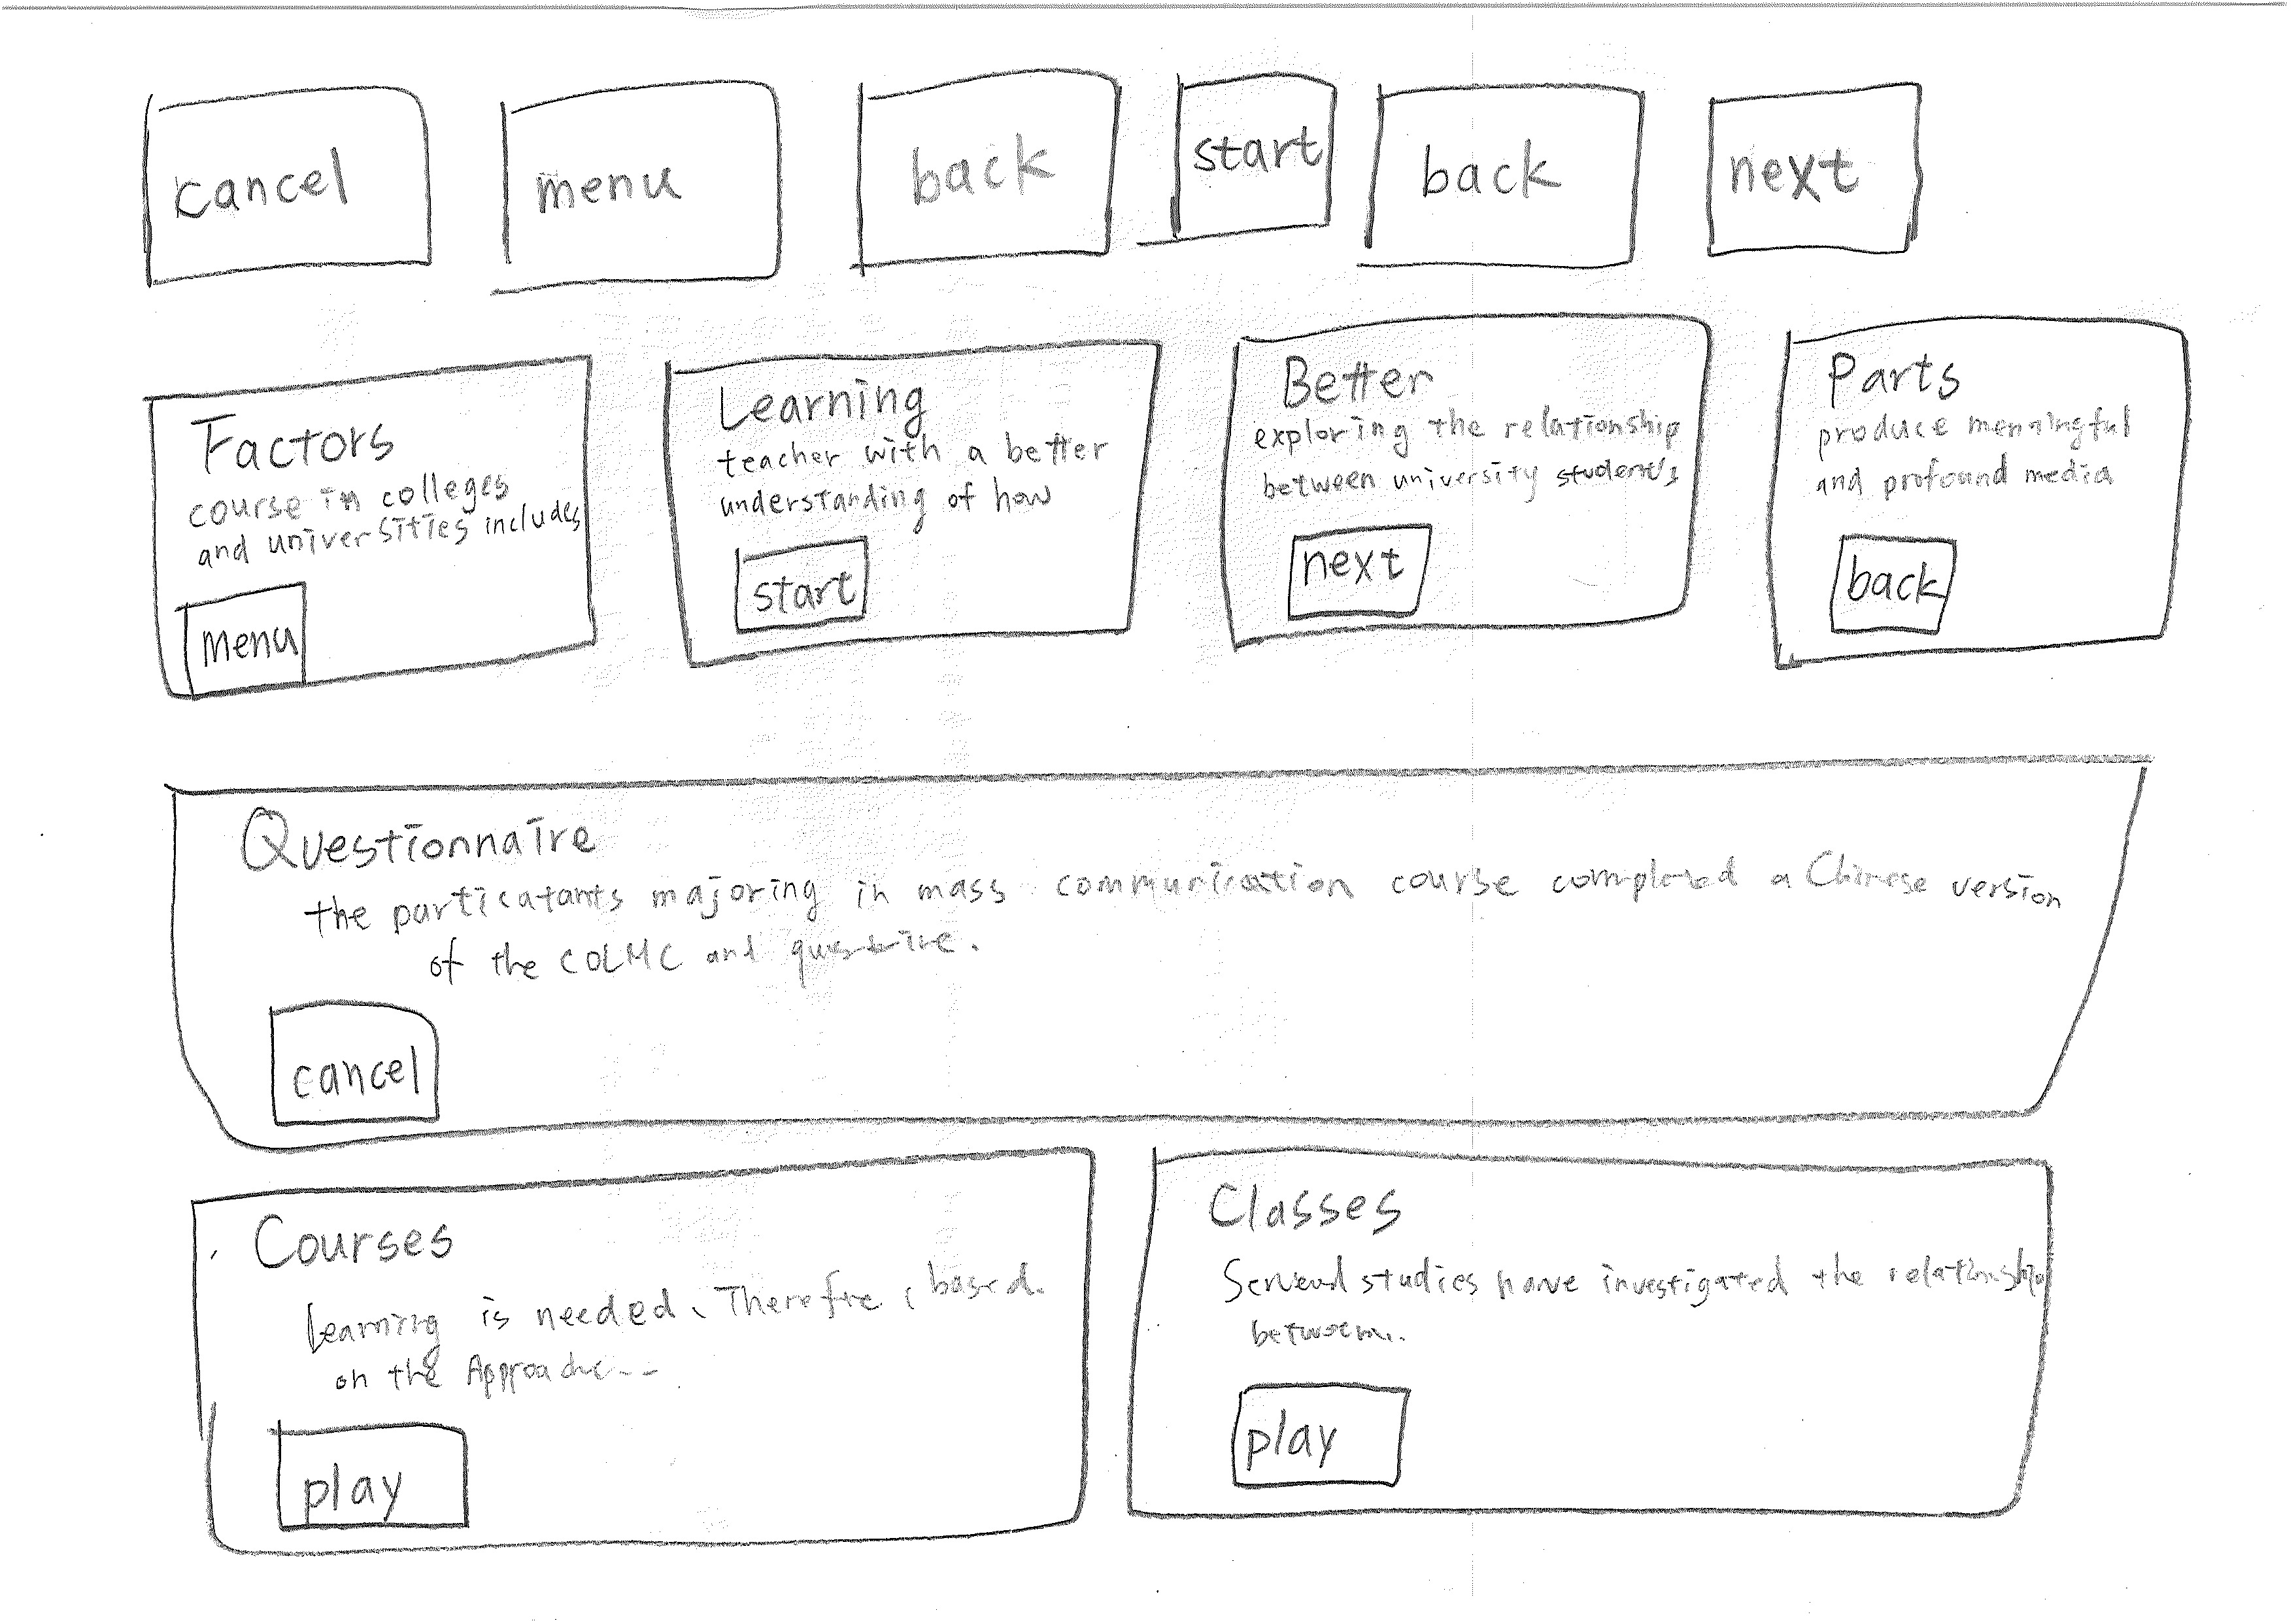 cancel
menu
back
start
back
next
Factors
course in colleges
and universities includes
menu
Learning
teacher with a better
understanding of how
start
Better
exploring the relationship
between university student's
next
Parts
produce menningful
and profound media
back
Questionnaire
the particatants majoring in mass communication course completed a Chinese version
of the COLMC and
cancel
Courses
Learning is needed. Therefre, based.
on the
play
Classes
studies have investigated the relationship
between..
play